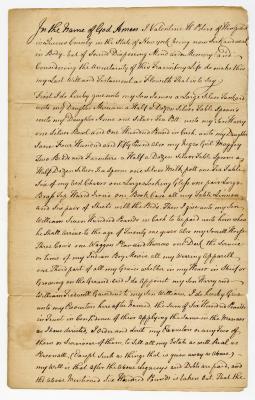 In the Name of God Amen I Valentine H. Peters of Hempstead
in Queens County in the State of New york being now
in Body but of Sound Disposing Mind and Memory and
Considering the uncertainty of this Transitory Life do make this
my Last Will and Testament as followeth That is to say
First I do hereby give unto my Son James a Large Silver Tankard
unto my Daughter a Half a Dozen Silver Table Spoons
unto my Daughter Anne one Silver Tea Pott unto my Son Henry
one Silver Bowl and One Hundred Pound in Cash unto my Daughter
Jane Four Hundred and Fifty Pound also my Negro Girl
Two Beds and Furniture a Half a Dozen Silver Table Spoons a
Half Dozen Silver Tea Spoons one Silver Milk pott one Tea Table
Six of my best Chairs one Large Looking Glass one pair Large
Brass top Hand Irons one all my Table Linnen
and Six pair of Sheets with the Beds. Then I give unto my Son
William Seven Hundred Pounds in Cash to be paid unto him when
he shall arrive to the age of Twenty one years also my small Horse
Three Cows one Waggon Plow and Harrow one Desk the Service
or time of my Indian Boy all my wearing Apparell
one Third part of all my Grain whether in my House or Sheaf or
Growing on the Ground and I do Appoint my Son Henry and
William Guardians to my Son William, I do hereby Give
unto my Executors hereafter Named the Sum of Six Hundred Pounds
in Trust in Confidence of their Applying the Same in the Manner
as I have directed, I order and direct my Executors or any two of
them or Survivor of them, to Sell all my Estate as well Real as
Personall, (Except Such as things that is given away as above)
my Will is that after the above Legacys and Debts are paid, and
the above Mentioned Six Hundred Pounds is taken out That the